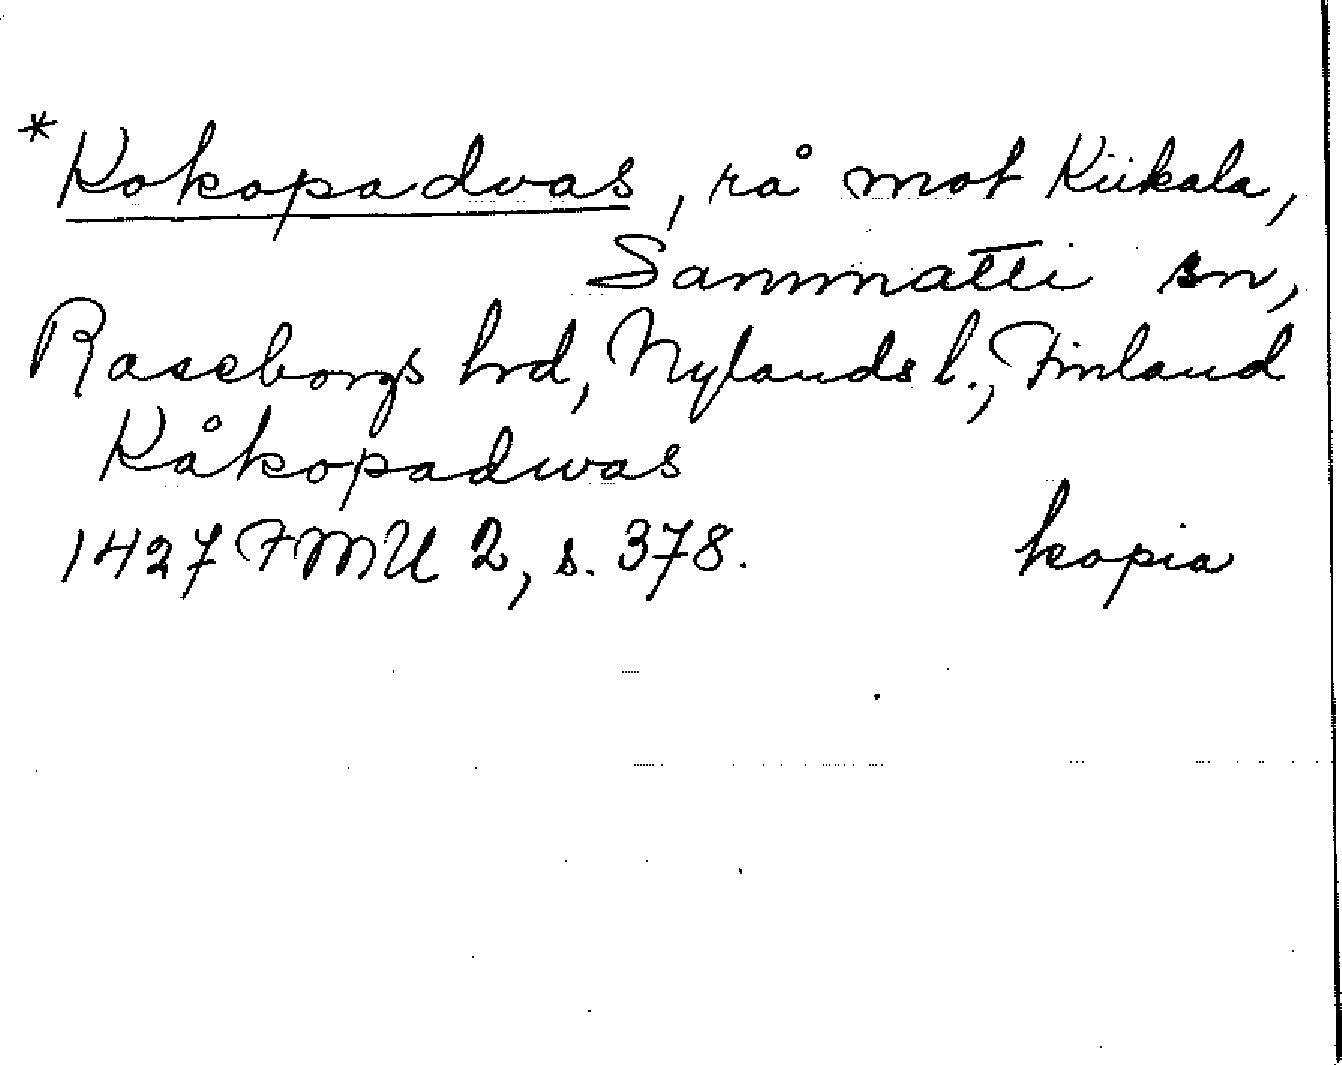 *Kokopadvas, rå mot Kiikala,
Sammatti sn,
Raseborgs hrd, Nylands l., Finland
Kåkopadwas
1427 FMU 2, s. 378. kopia